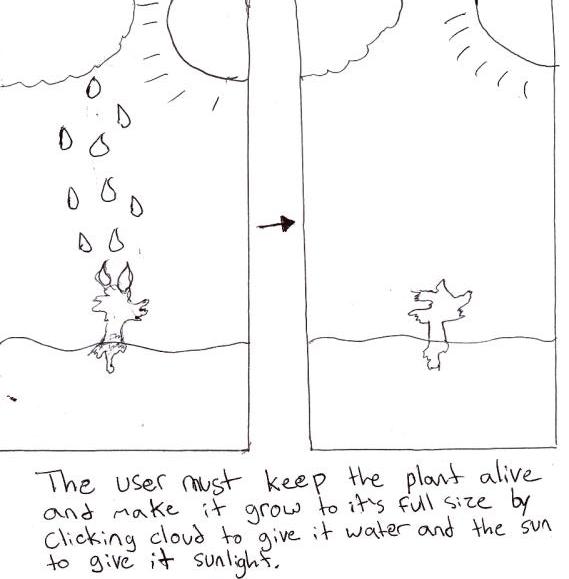 The user must keep the plant alive
and make it grow to it's full size by
Clicking cloud to give it water and the sun
to give it sunlight.